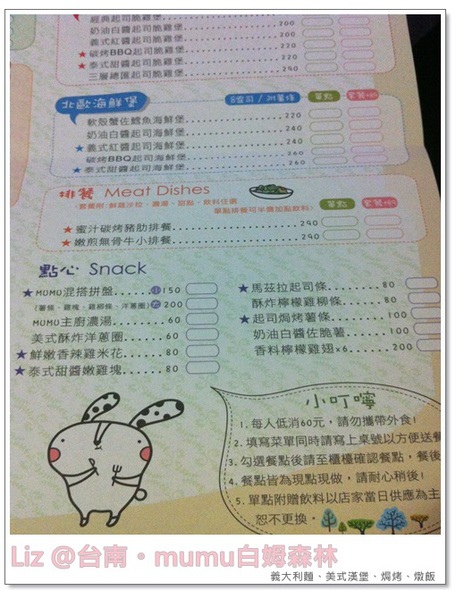 經典起司脆雞堡
奶油白醬起司脆雞堡 200
義式紅醬起司脆雞堡
★碳烤BBQ起司脆雞堡 220
★泰式甜醬起司脆雞堡 220
三層總匯起司脆雞堡 240
北歐海鮮堡 單點 套餐
軟殼蟹佐鱈魚海鮮堡 220
奶油白醬起司海鮮堡 240
★義式紅醬起司海鮮堡 240
碳烤BBQ起司海鮮堡 260
★泰式甜醬起司海鮮堡 260
排餐 Meat Dishes 單點
★蜜汁碳烤豬肋排餐 290
★嫩煎無骨牛小排餐 290
點心 Snack
★MUMU混搭拼盤 小150
(薯條、雞塊、雞柳條、洋蔥圈) 大200
MUMU主廚濃湯 60
美式酥炸洋蔥圈 60
★鮮嫩香辣雞米花 80
★泰式甜醬嫩雞塊 80
★馬茲拉起司條 80
酥炸檸檬雞柳條 80
★起司焗烤薯條 100
奶油白醬佐脆薯 100
香料檸檬雞翅×6 200
小叮嚀
1.每人低消60元，請勿攜帶外食!
2.填寫菜單同時請寫上桌號以方便送餐
3.勾選餐點後請至櫃檯確認餐點，餐後
4.餐點皆為現點現做，請耐心稍後!
5.單點附贈飲料以店家當日供應為主
恕不更換.
Liz @台南・mumu白姆森林
義大利麵、美式漢堡、焗烤、燉飯